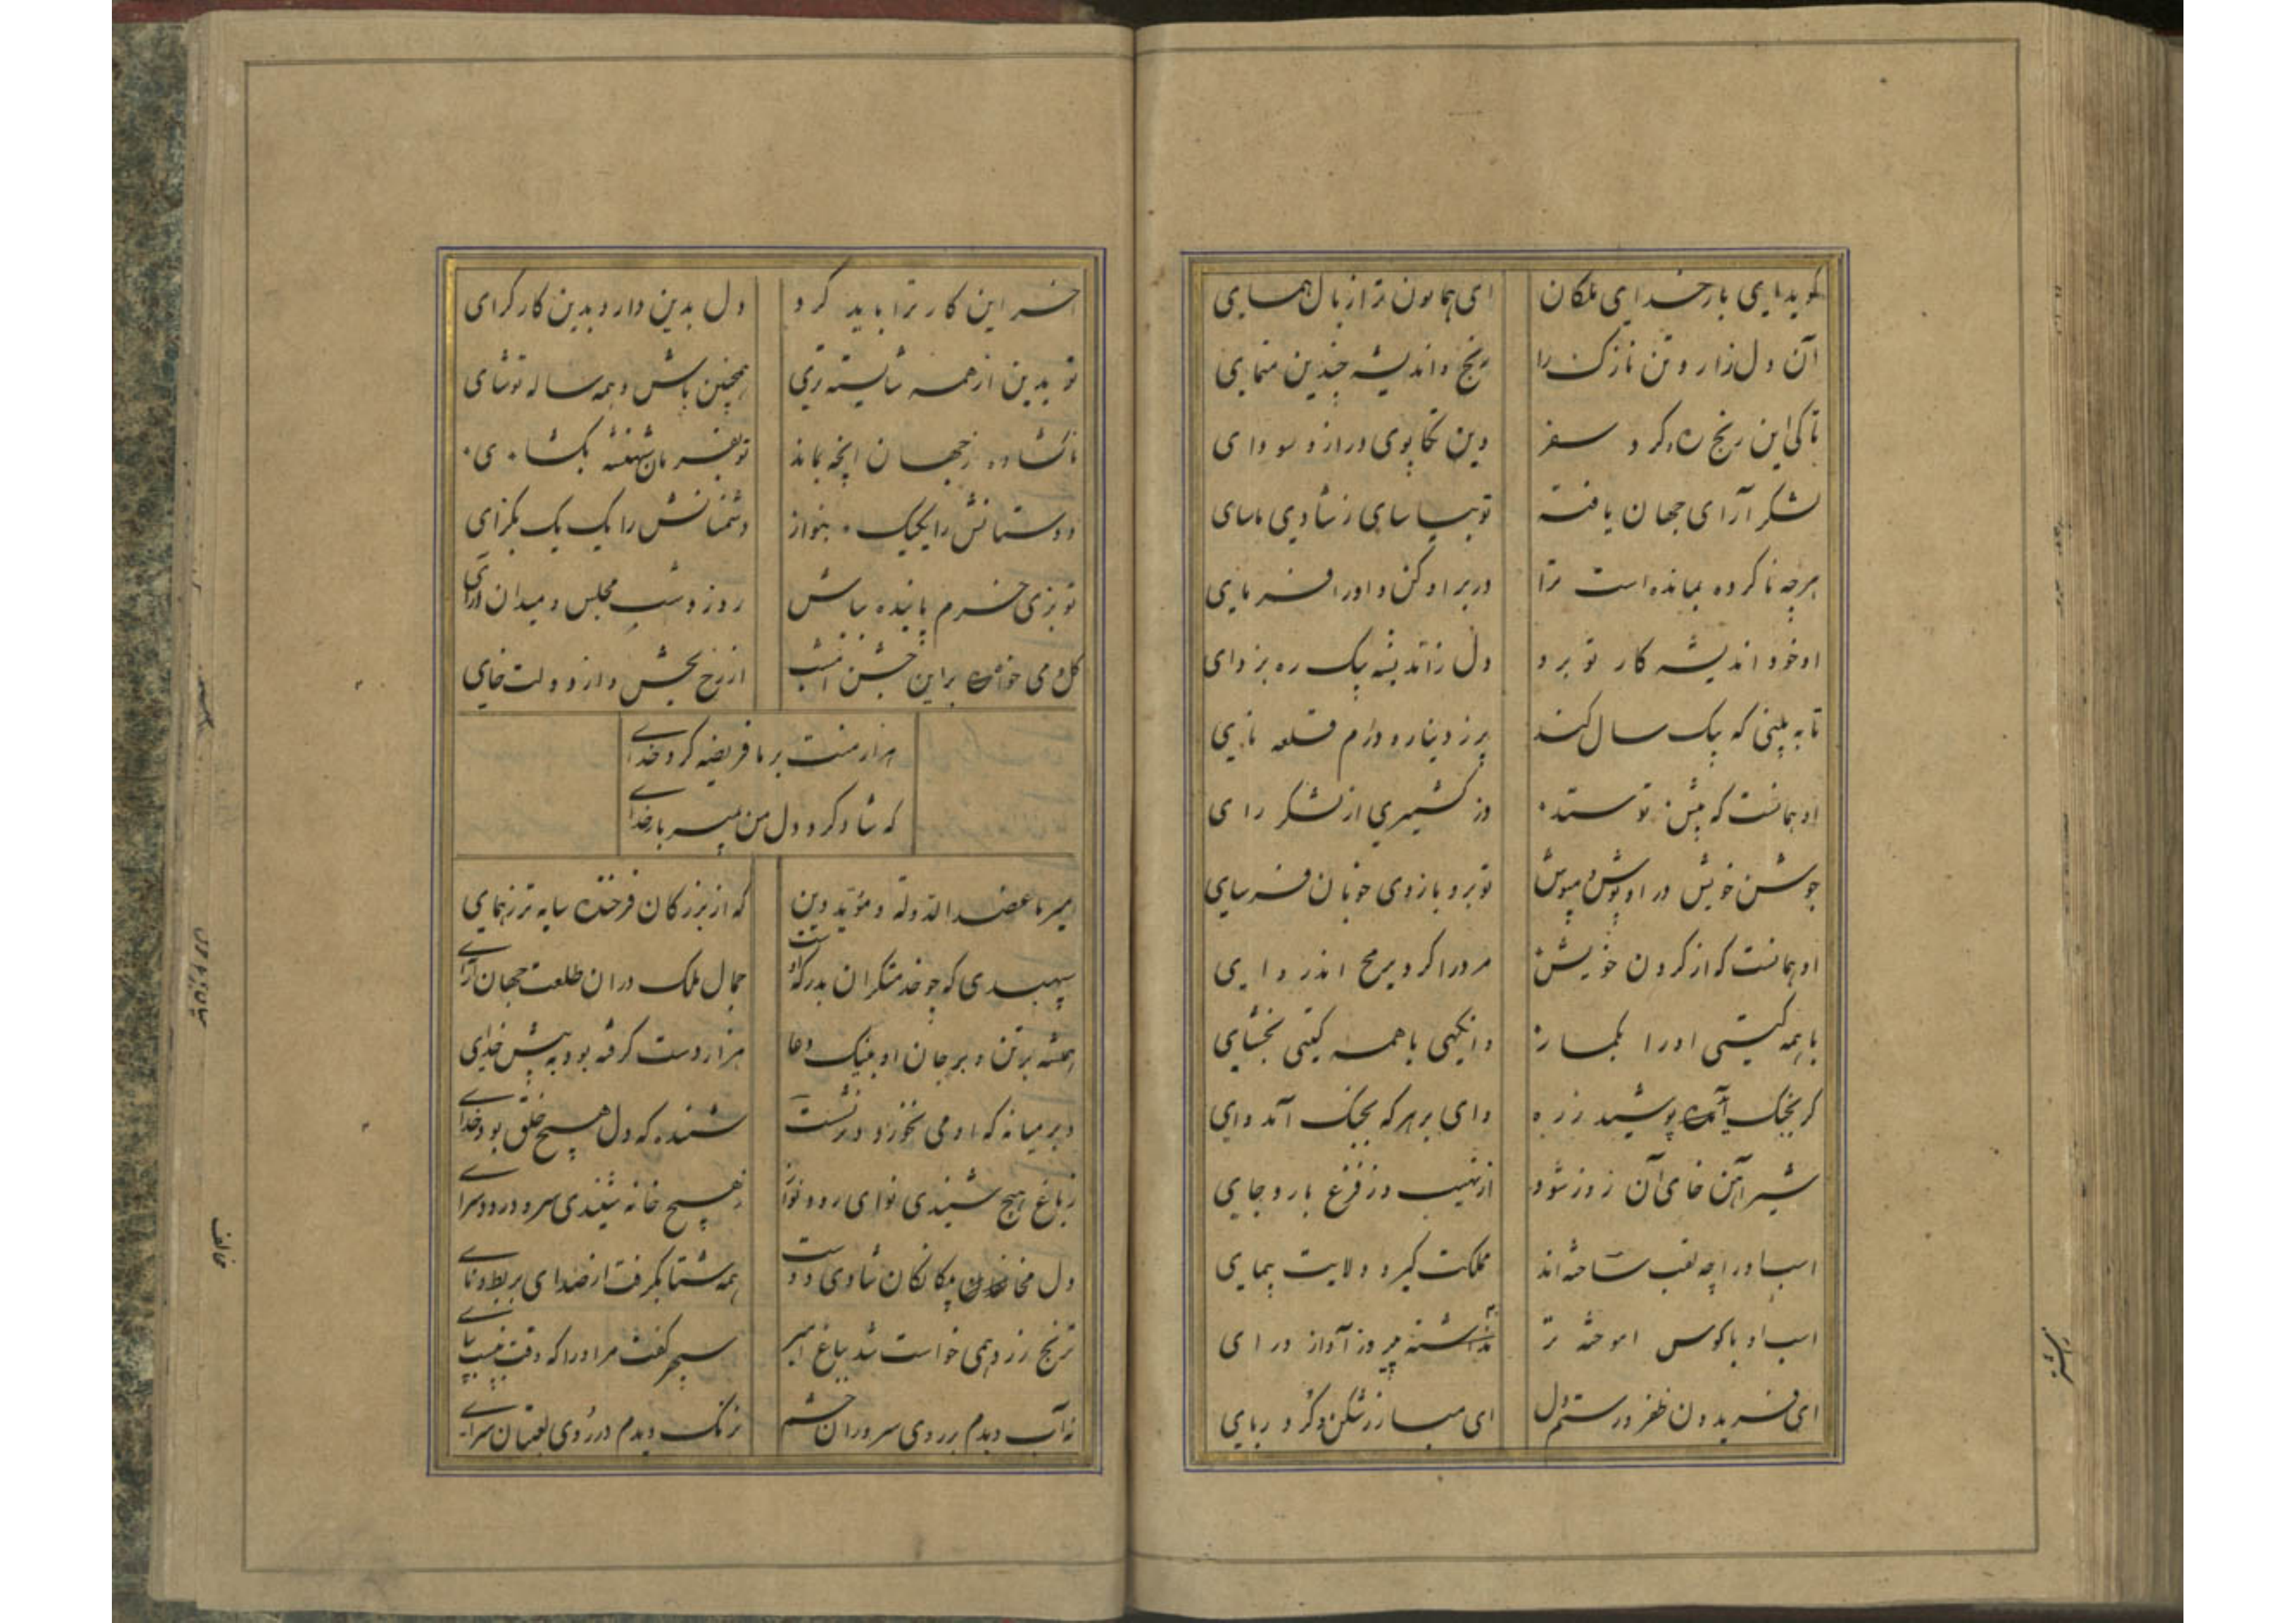 گوید ای بار خدای ملکان ای همایون تر از بال همای
آن دل زار و تن نازک را رنج و اندیشه چندین منمای
تا کی این رنج ره و گرد سفر وین تکاپوی دراز و سودای
لشکر آرای جهان یافته تو بیاسای ز شادی ماسای
هرچه ناکرده بمانده است ترا در بر او کن و او را فرمای
او خود اندیشه کار تو برد دل ز اندیشه بیک ره بزدای
تا به بینی که بیک سال کند پر ز دینار و درم قلعه نای
او همانست که پیش تو ستد در کشمیری از لشکر رای
جوشن خویش در او پوش و مپوش تو بر و بازوی خوبان فرسای
او همانست که از گردن خویش مرد را کرد برمح اندر وای
با همه گیتی او را بگمار وانگهی با همه گیتی بخشای
گر بجنگ آمده پوشید زره وای بر هر که بجنگ آمد وای
شیر آهن خای آن روز شود از نهیب و ز فزع بارو جای
اسب او را چه لقب ساخته اند مملکت گیر و ولایت پیمای
اسب او با کوس آموخته تر اشتر پیر وز آواز درای
ای فریدون ظفر و رستم دل ای مبارز شکن و گرد ربای
آخر این کار ترا باید کرد دل بدین دار و بدین کار گرای
تو بدین از همه شایسته تری همچنین باش و همه ساله تو شای
ناگشاده ز جهان آنچه بماند تو بفرمان شهنشه بگشای
دوستانش را یکیک بنواز دشمنانش را یک یک بگزای
تو بزی خرم پاینده بباش روز و شب مجلس و میدان آرای
گل و می خواه بر این جشن امشب از رخ بخشی و از دولت خای
هزار منت بر ما فریضه کرد خدای
که شاد کرد دل من میر بار خدای
امیر ما عضد الدوله و مؤید دین که از بزرگان فرخنده سایه تر ز همای
سپهبدی که چو خدمتگران بدرگه اوست جمال ملک در آن طلعت جهان آرای
همیشه بر تن و بر جان او بنیک دعا هزار دست گرفته بود به پیش خدای
در میانه که او می نخورد و ننشست شنیده که دل هیچ خلق بود بجای
ز باغ هیچ شنیدی نوای رود نواز ز هیچ خانه شنیدی سرود رود سرای
دل مخالفان بیگانگان شادی دوست همه شتا بگرفت از صدای بربط و نای
ترنج زرد همی خواست شد بباغ امیر سپهر گفت مر او را که وقت نیست بپای
نه آب دیدم بر روی سروران حشم نه رنگ دیدم در روی لعبتان سرای